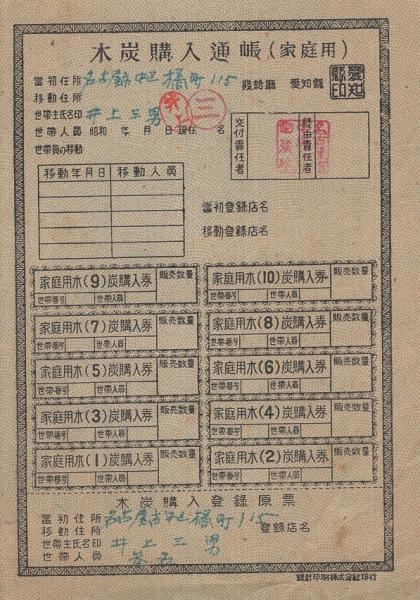 木炭購入通帳(家庭用)
當初住所 名古屋市中区橘町115 発給庁 愛知縣
愛知縣印
移動住所
世帯主氏名印 井上三男 井上 三
世帯人員 昭和 年 月 日現在 名
交付責任者
経由責任者
世帯員の移動
移動年月日 移動人員
當初登録店名
移動登録店名
家庭用木(9)炭購入券 販売数量
世帯番号 世帯人員
家庭用木(10)炭購入券 販売数量
世帯番号 世帯人員
家庭用木(7)炭購入券 販売数量
世帯番号 世帯人員
家庭用木(8)炭購入券 販売数量
世帯番号 世帯人員
家庭用木(5)炭購入券 販売数量
世帯番号 世帯人員
家庭用木(6)炭購入券 販売数量
世帯番号 世帯人員
家庭用木(3)炭購入券 販売数量
世帯番号 世帯人員
家庭用木(4)炭購入券 販売数量
世帯番号 世帯人員
家庭用木(1)炭購入券 販売数量
世帯番号 世帯人員
家庭用木(2)炭購入券 販売数量
世帯番号 世帯人員
木炭購入登録原票
當初住所 名古屋市中区橘町115
移動住所 登録店名
世帯主氏名印 井上三男
世帯人員
統計印刷株式会社印行